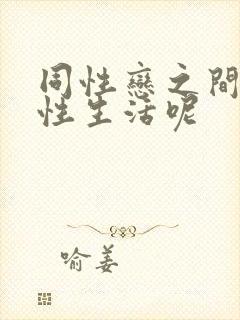 同性戀之間
性生活呢
喻姜